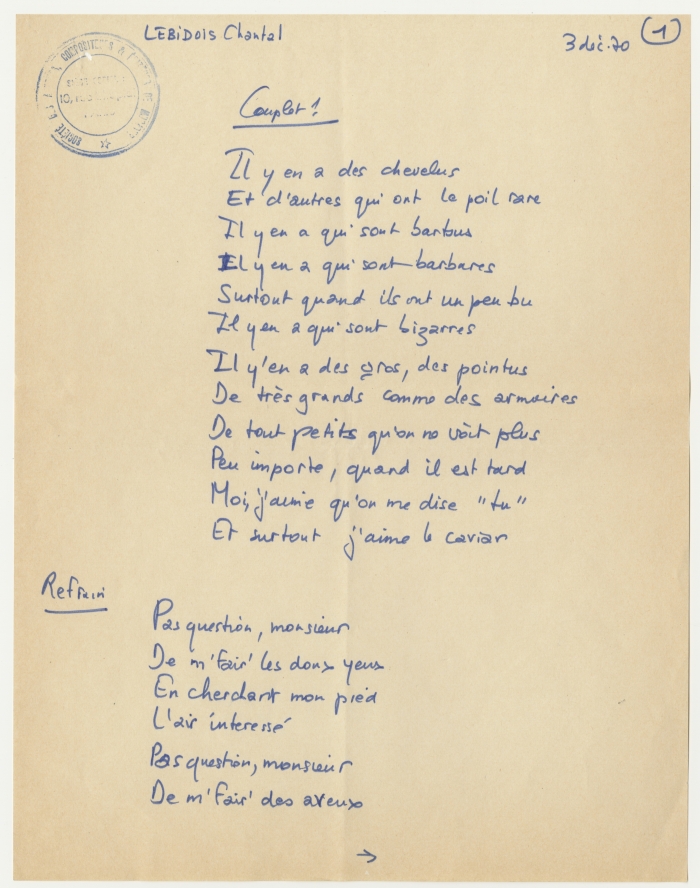 LEBIDOIS Chantal
3 déc. 70
1
COMPOSITEURS &
SOCIÉTÉ DES
10, rue
Couplet 1
Il y en a des chevelus
Et d'autres qui ont le poil rare
Il y en a qui sont barbus
Il y en a qui sont barbares
Surtout quand ils ont un peu bu
Il y en a qui sont bizarres
Il y'en a des gros, des pointus
De très grands comme des armoires
De tout petits qu'on ne voit plus
Peu importe, quand il est tard
Moi, j'aime qu'on me dise "tu"
Et surtout j'aime le caviar
Refrain
Pas question, monsieur
De m'fair' les doux yeux
En cherchant mon pied
L'air interessé
Pas question, monsieur
De m'fair' des aveux
→